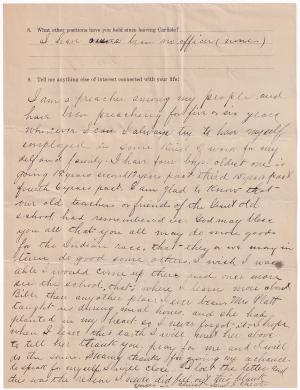 8. What other positions have you held since leaving Carlisle?
I have never been an officer (none)
9. Tell me anything else of interest connected with your life:
I am a preacher among my people, and
have been preaching for five or six years
Whenever I can I always try to have myself
employed in some kind of work for my
self and family. I have four boys. oldest one is
going 18 years second 17 years past third 15 years past
fourth 6 years past. I am glad to know that
our old teachers or friends of the dear old
school had remembered us. God may bless
you all that you all may do more good
for the Indian race, that they or we may in
time do good some others. I wish I was
able I would come up there and once more
see the school. that's where I learn more about
Bible than any other place I ever been. Mrs Platt
taught us during meal hours. and she had
planted in my heart so I never forget. I do hope
when I leave this earth I will see her there
to tell her thank you, pray for me and I will
do the same. Many thanks for giving me a chance
to speak for myself
was the reason I never did fill out the blanks